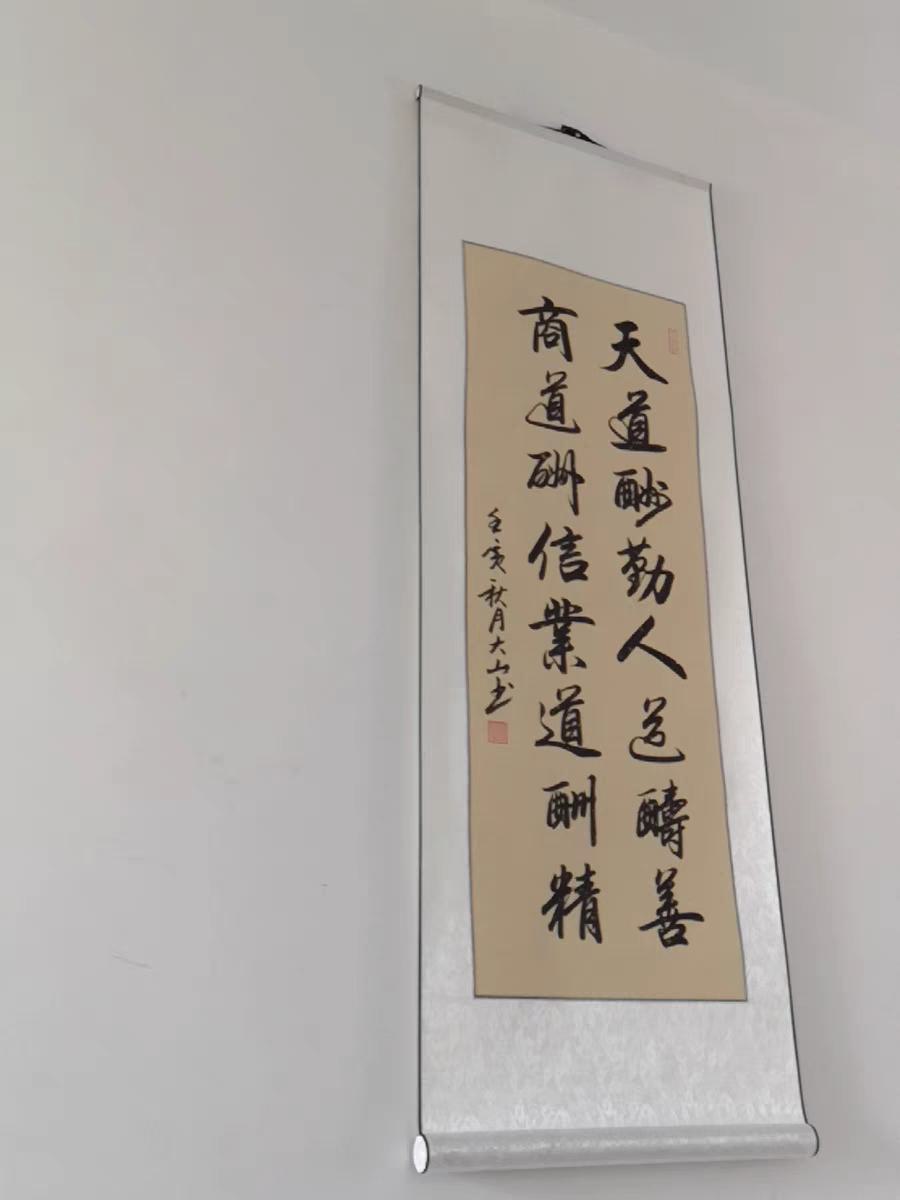 天道酬勤人道醻善
商道酬信業道酬精
壬寅秋月大山书